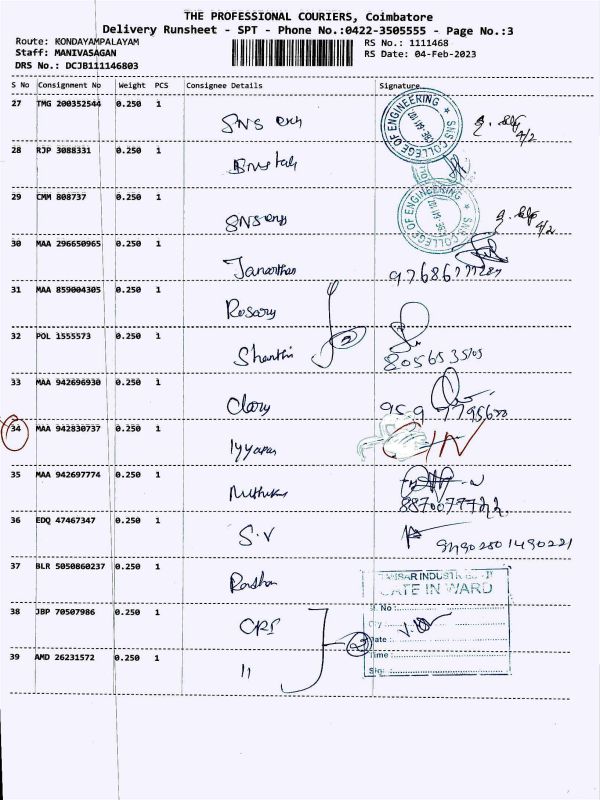 THE PROFESSIONAL COURIERS, Coimbatore
Delivery Runsheet - SPT - Phone No.:0422-3505555 - Page No.:3
Route: KONDAYAMPALAYAM
RS No.: 1111468
Staff: MANIVASAGAN
RS Date: 04-Feb-2023
DRS No.: DCJB111146803
S No Consignment No Weight PCS Consignee Details Signature
27 TMG 200352544 0.250 1
SNS
SNS COLLEGE OF ENGINEERING
CBE-641 107
4/2
28 RJP 3088331 0.250 1
29 CMM 808737 0.250 1
SNS engg
SNS COLLEGE OF ENGINEERING
CBE-641 107
4/2
30 MAA 296650965 0.250 1
Janarthan
31 MAA 859004305 0.250 1
Rosary
2
32 POL 1555573 0.250 1
Shanthi
33 MAA 942696930 0.250 1
Clary
34 MAA 942830737 0.250 1
Iyyapan
35 MAA 942697774 0.250 1
36 EDQ 47467347 0.250 1
S.V
37 BLR 5050860237 0.250 1
GATE IN WARD
38 JBP 70507986 0.250 1
CRI
No :
Date :
39 AMD 26231572 0.250 1
11
Time :
Sig